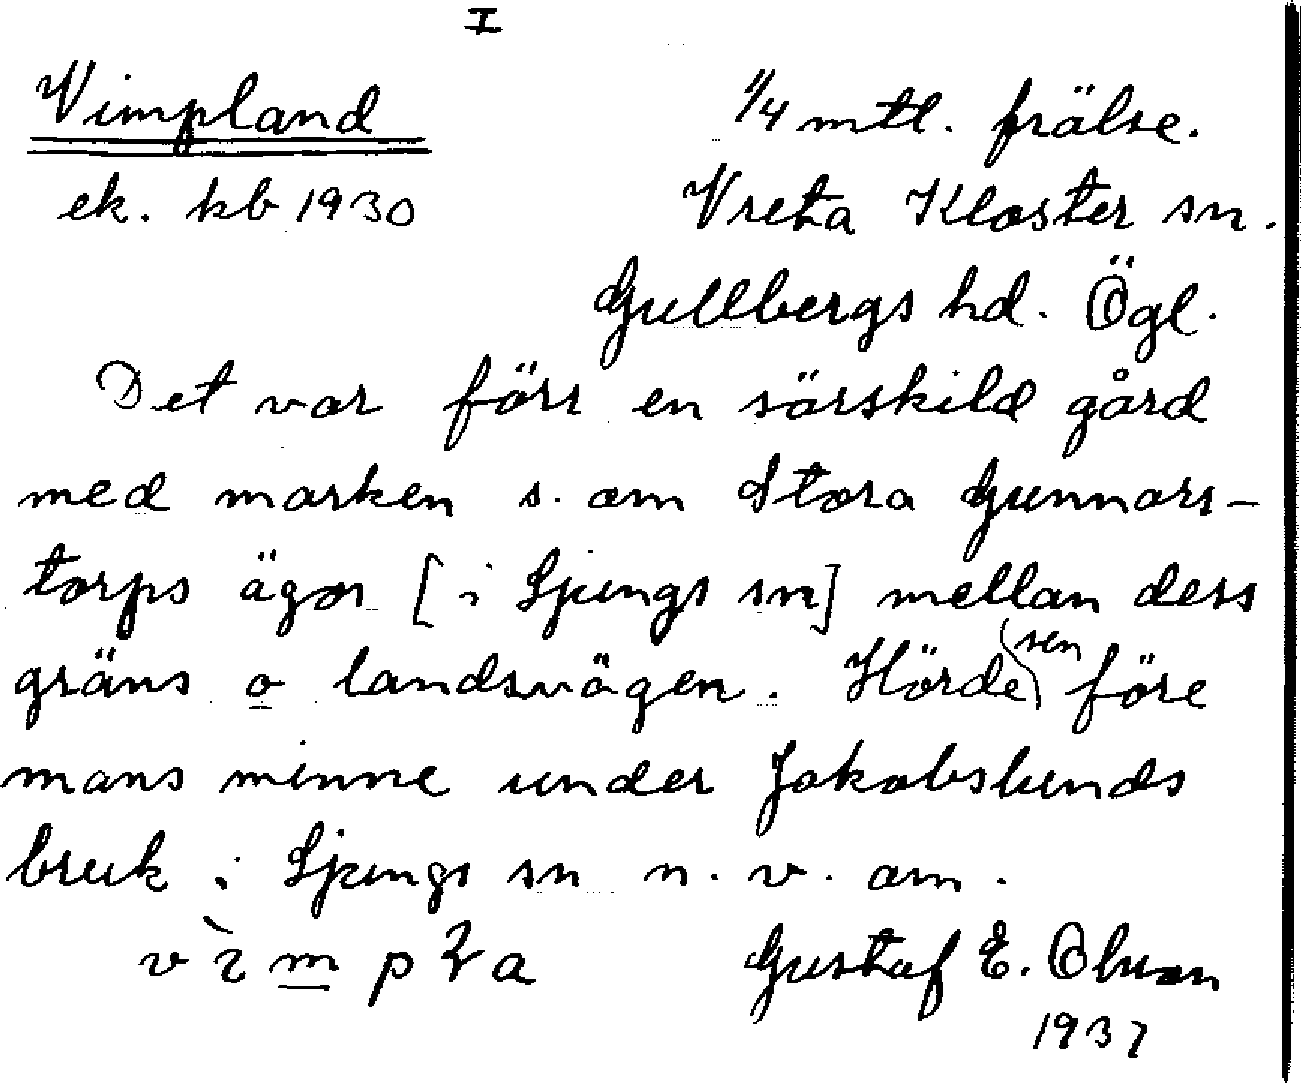 I
Vimpland
1/4 mtl. frälse.
ek. kb 1930
Vreta Kloster sn.
Gullbergs hd. Ögl.
Det var förr en särskild gård
med marken s. om Stora Gunnars-
torps ägor [i Ljungs sn] mellan dess
gräns o landsvägen. Hörde sen före
mans minne under Jakobslunds
bruk i Ljungs sn n. v. om.
Gustaf E. Olsson
1937